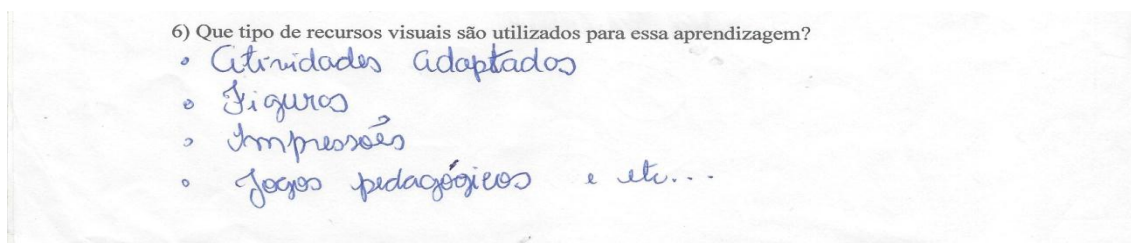 6) Que tipo de recursos visuais são utilizados para essa aprendizagem?
• Atividades adaptados
• Figuras
• Impressões
• Jogos pedagógicos e etc...